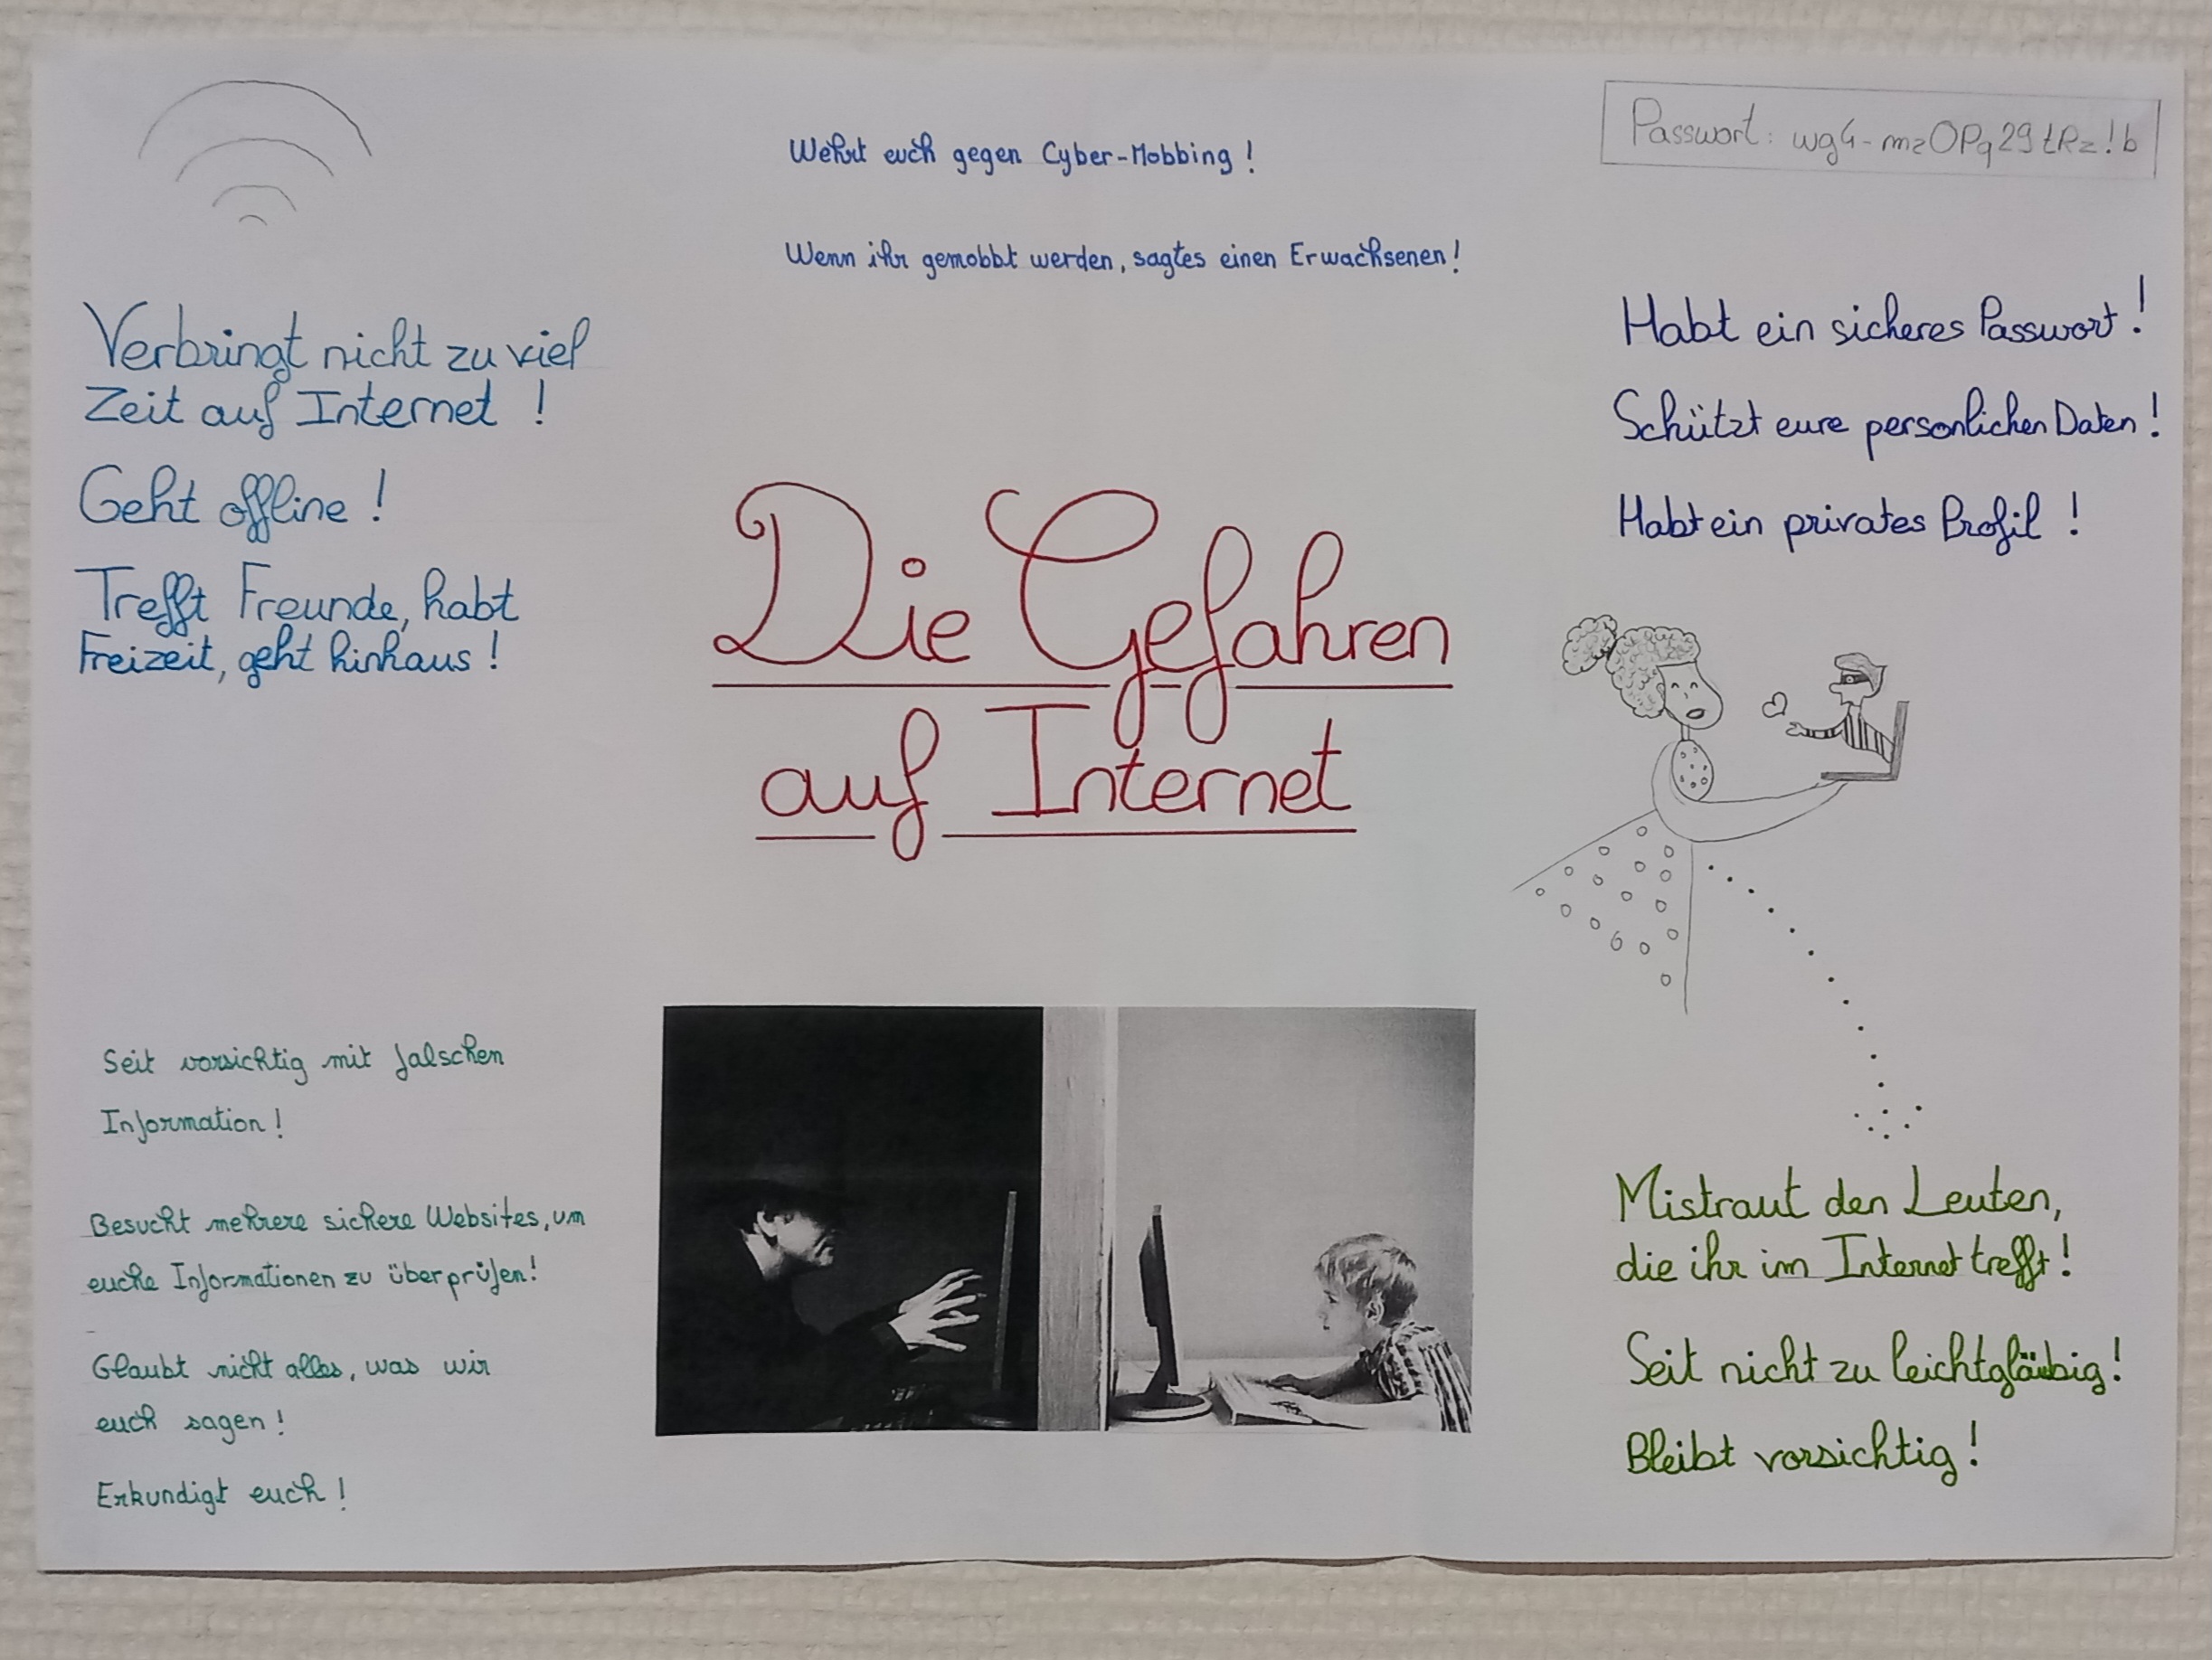 Wehrt euch gegen Cyber-Mobbing !
Wenn ihr gemobbt werden, sagtes einen Erwachsenen !
Passwort : wg4-mzOPq29tRz!b
Verbringt nicht zu viel
Zeit auf Internet !
Geht offline !
Trefft Freunde, habt
Freizeit, geht hinhaus !
Die Gefahren
auf Internet
Habt ein sicheres Passwort !
Schützt eure personlichen Daten !
Habt ein privates Profil !
Seit vorsichtig mit falschen
Information !
Besucht mehrere sichere Websites, um
euche Informationen zu überprüfen !
Glaubt nicht alles, was wir
euch sagen !
Erkundigt euch !
Mistraut den Leuten,
die ihr im Internet trefft !
Seit nicht zu leichtgläubig !
Bleibt vorsichtig !